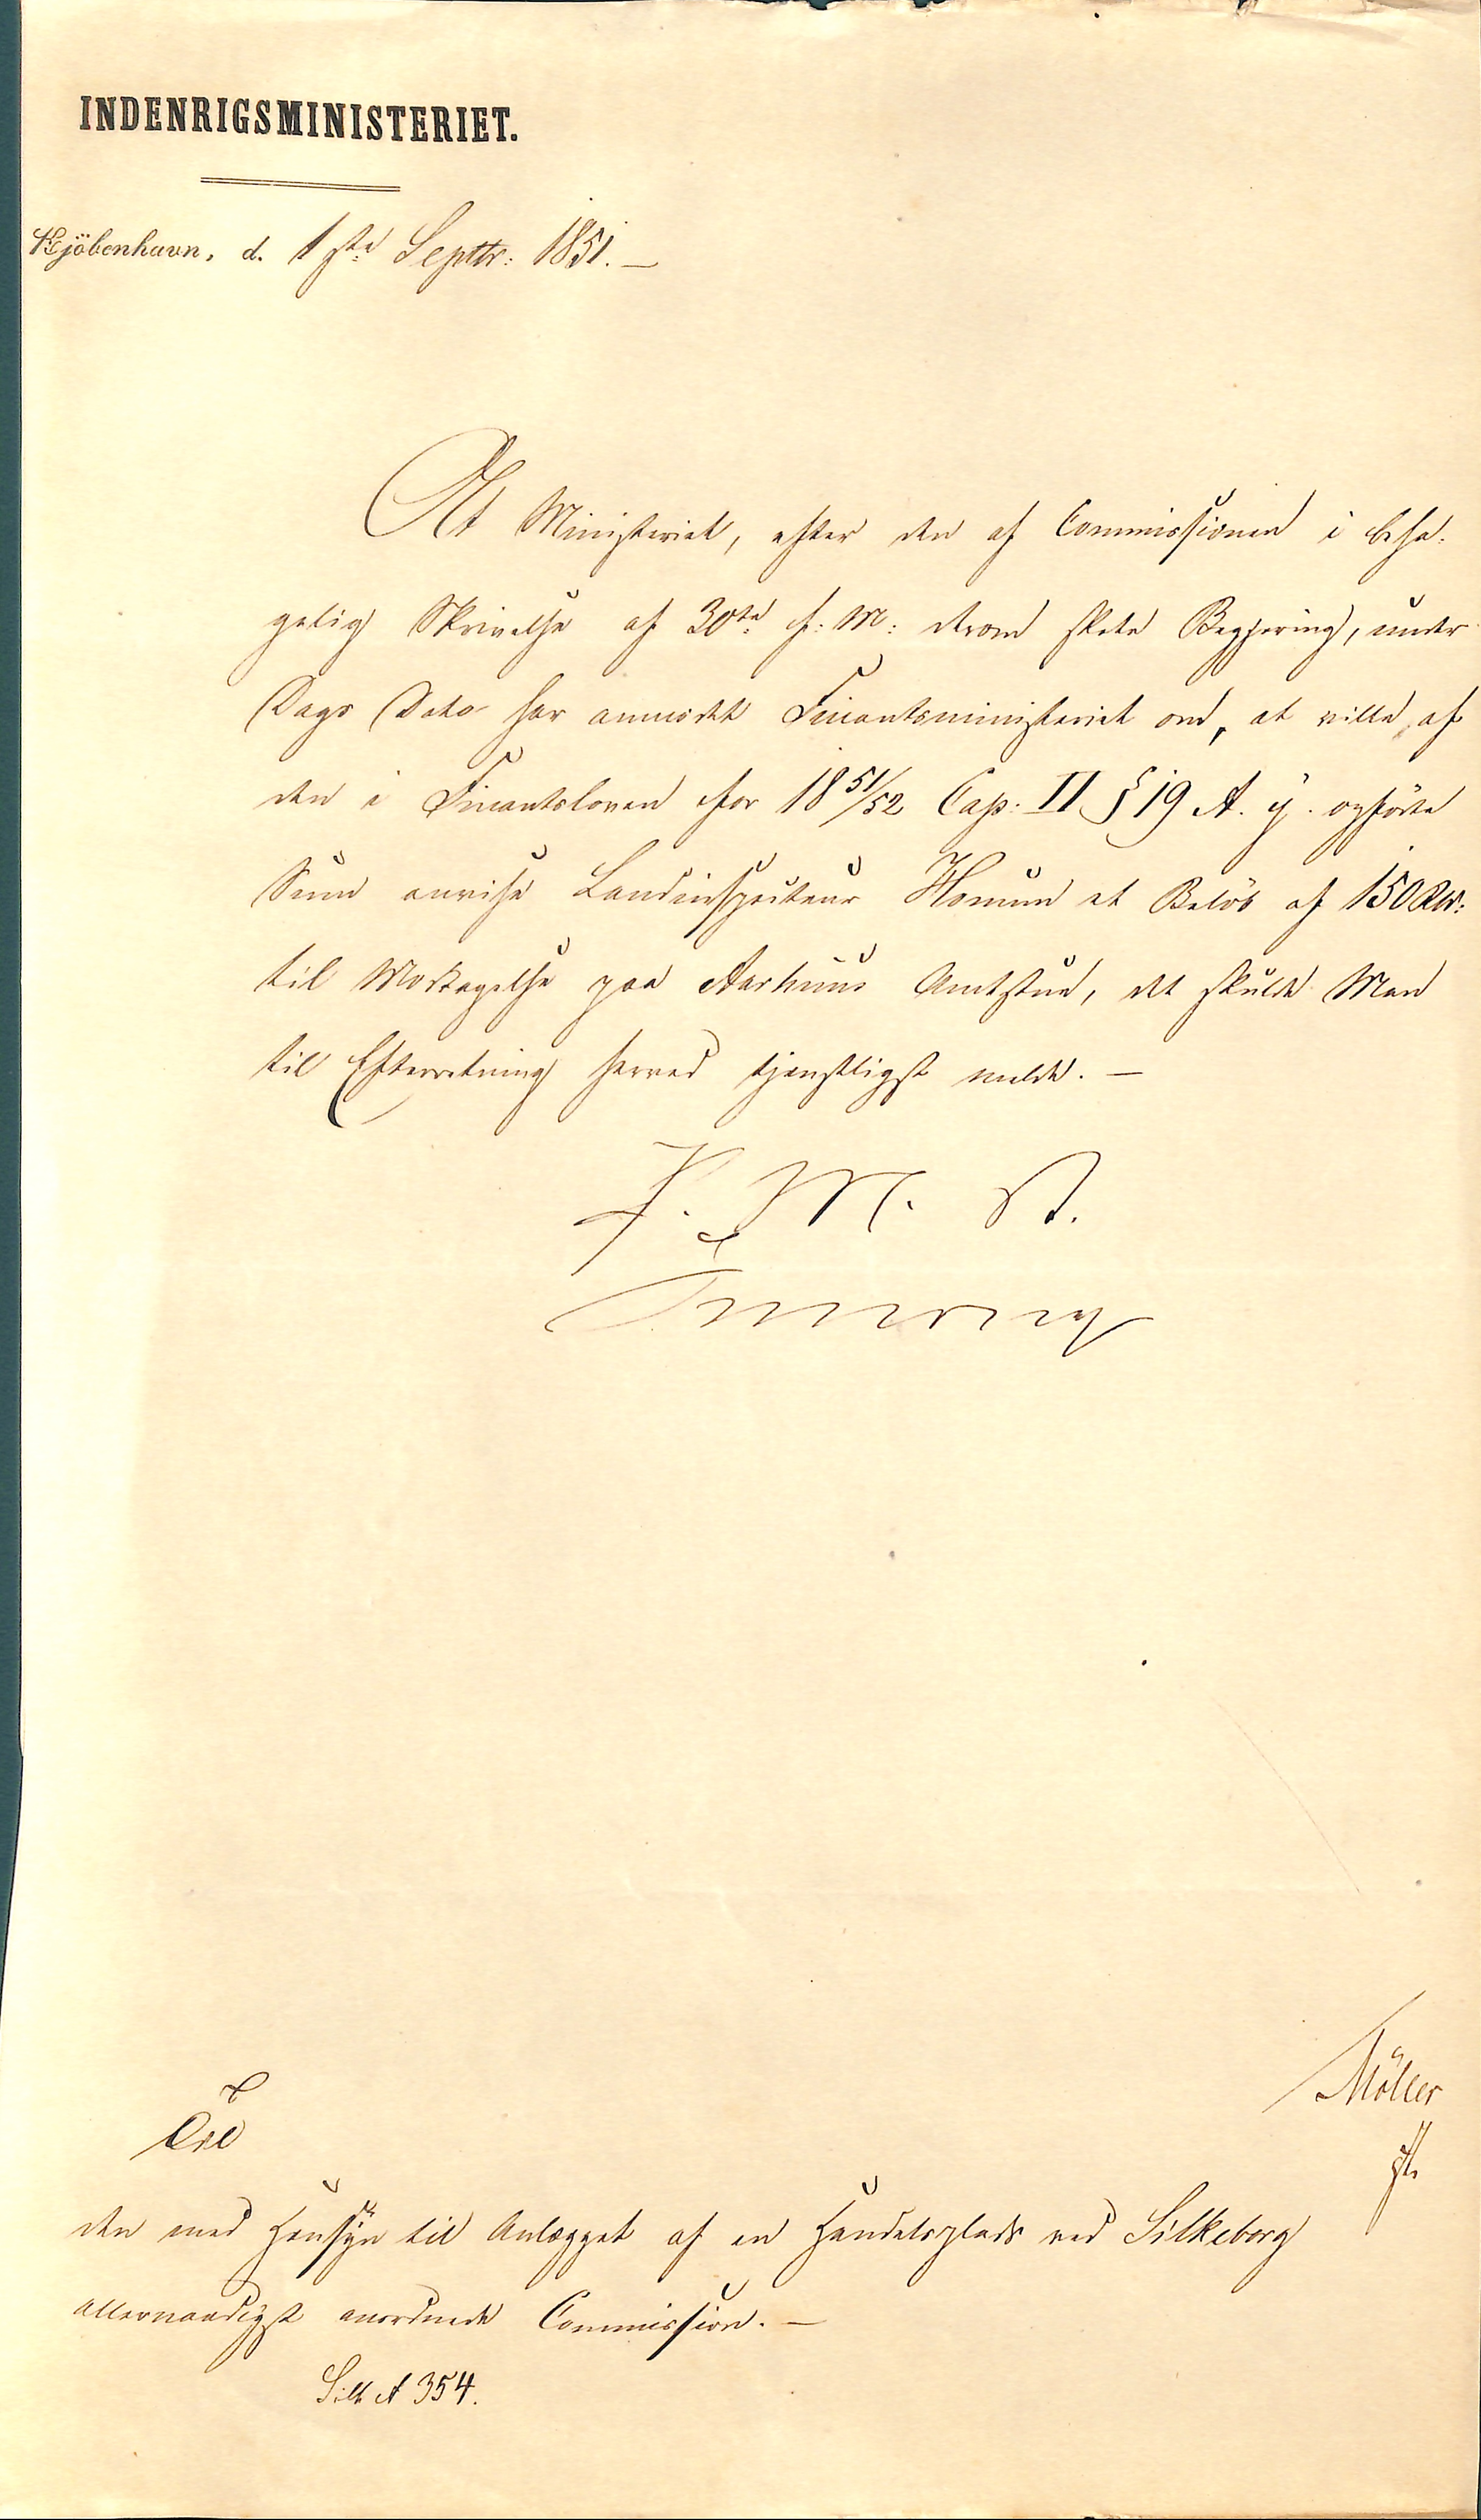 INDENRIGSMINISTERIET.
Kjöbenhavn, d. 1ste Septbr: 1851. —
At Ministeriet, efter den af Commissionen i beha-
gelig Skrivelse af 30te f: M: derom skete Begjering, under
Dags Dato har anmodet Finantsministeriet om, at ville, af
den i Finantsloven for 18 51/52 Cap: II § 19 A. y. opförte
Sum anvise Landinspecteur et Belöb af 150 Rbd:
til Modtagelse paa Aarhuus Amtstue, det skulde Man
til Efterretning herved tjenstligst melde. —
F. M. A.
Möller
Til
den med Hensyn til Anlægget af en Handelsplads ved Silkeborg
allernaadigst anordnede Commission. —
Silk A 354.